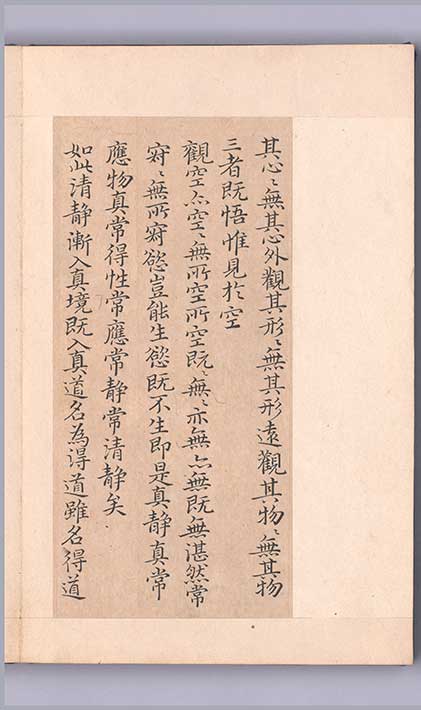 其心〻無其心外觀其形〻無其形遠觀其物〻無其物
三者既悟惟見於空
觀空亦空〻無所空所空既〻無〻亦無亦無既無湛然常
寂〻無所寂慾豈能生慾既不生即是真静真常
應物真常得性常應常静常清静矣
如此清静漸入真境既入真道名為得道雖名得道